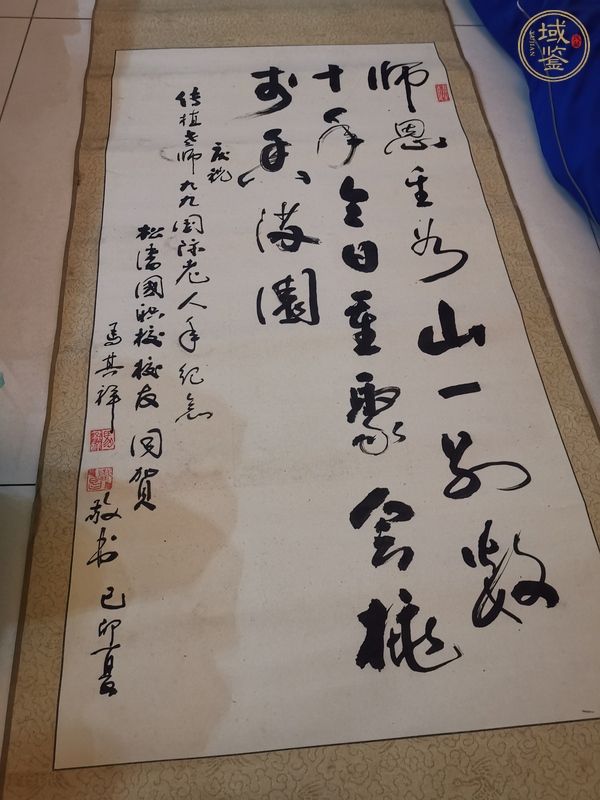 师恩重如山一别数
十年今日重聚会桃
李香满园
庆祝
传植老师九九国际老人年纪念
松潘国职校校友同贺
马其祥
敬书己卯夏
域鉴
YUJIAN